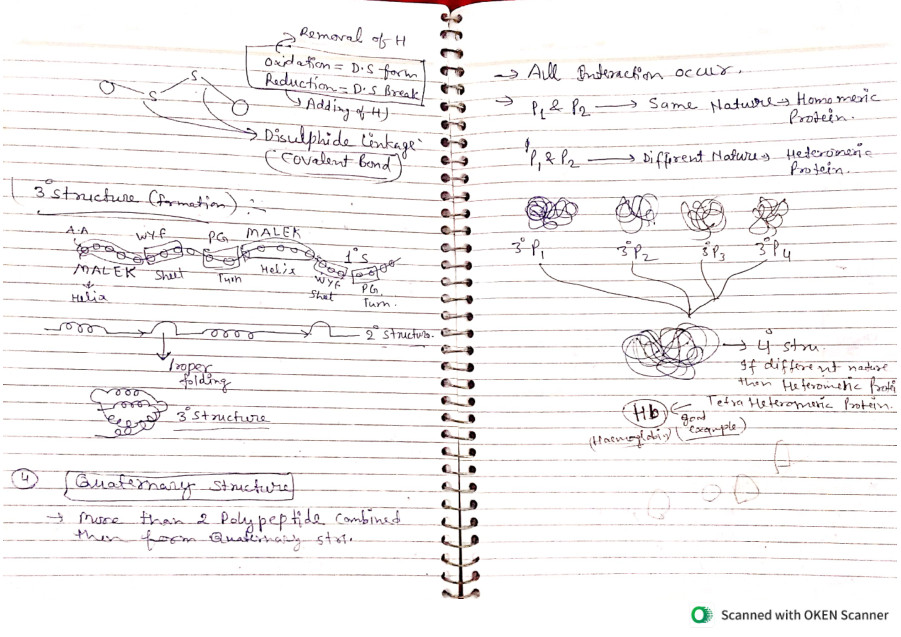 → Removal of H
Oxidation = D.S form
Reduction = D.S Break
→ Adding of H
S
S
→ Disulphide Linkage
(Covalent Bond)
3° structure (formation) :-
A.A
WYF
PG
MALEK
1° S
MALEK
Sheet
Turn
Helix
WYF
Sheet
PG
Turn.
↓
Helix
2° structure.
↓
Proper
folding
3° structure
④ Quaternary structure
→ More than 2 Polypeptide Combined
then form Quaternary str.
→ All Interaction occur.
→ P1 & P2 → Same Nature → Homomeric
Protein.
P1 & P2 → Diffrent Nature → Heteromeric
Protein.
3°P1 3°P2 3°P3 3°P4
→ 4° stru.
If different nature
then Heterometic Protei
Hb ← Tetra Heteromeric Protein.
good
(Haemoglobin) (example)
Scanned with OKEN Scanner